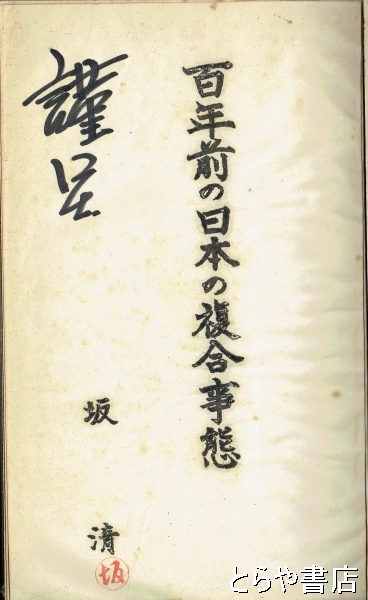 百年前の日本の複合事態
謹呈
坂 清
坂
とらや書店